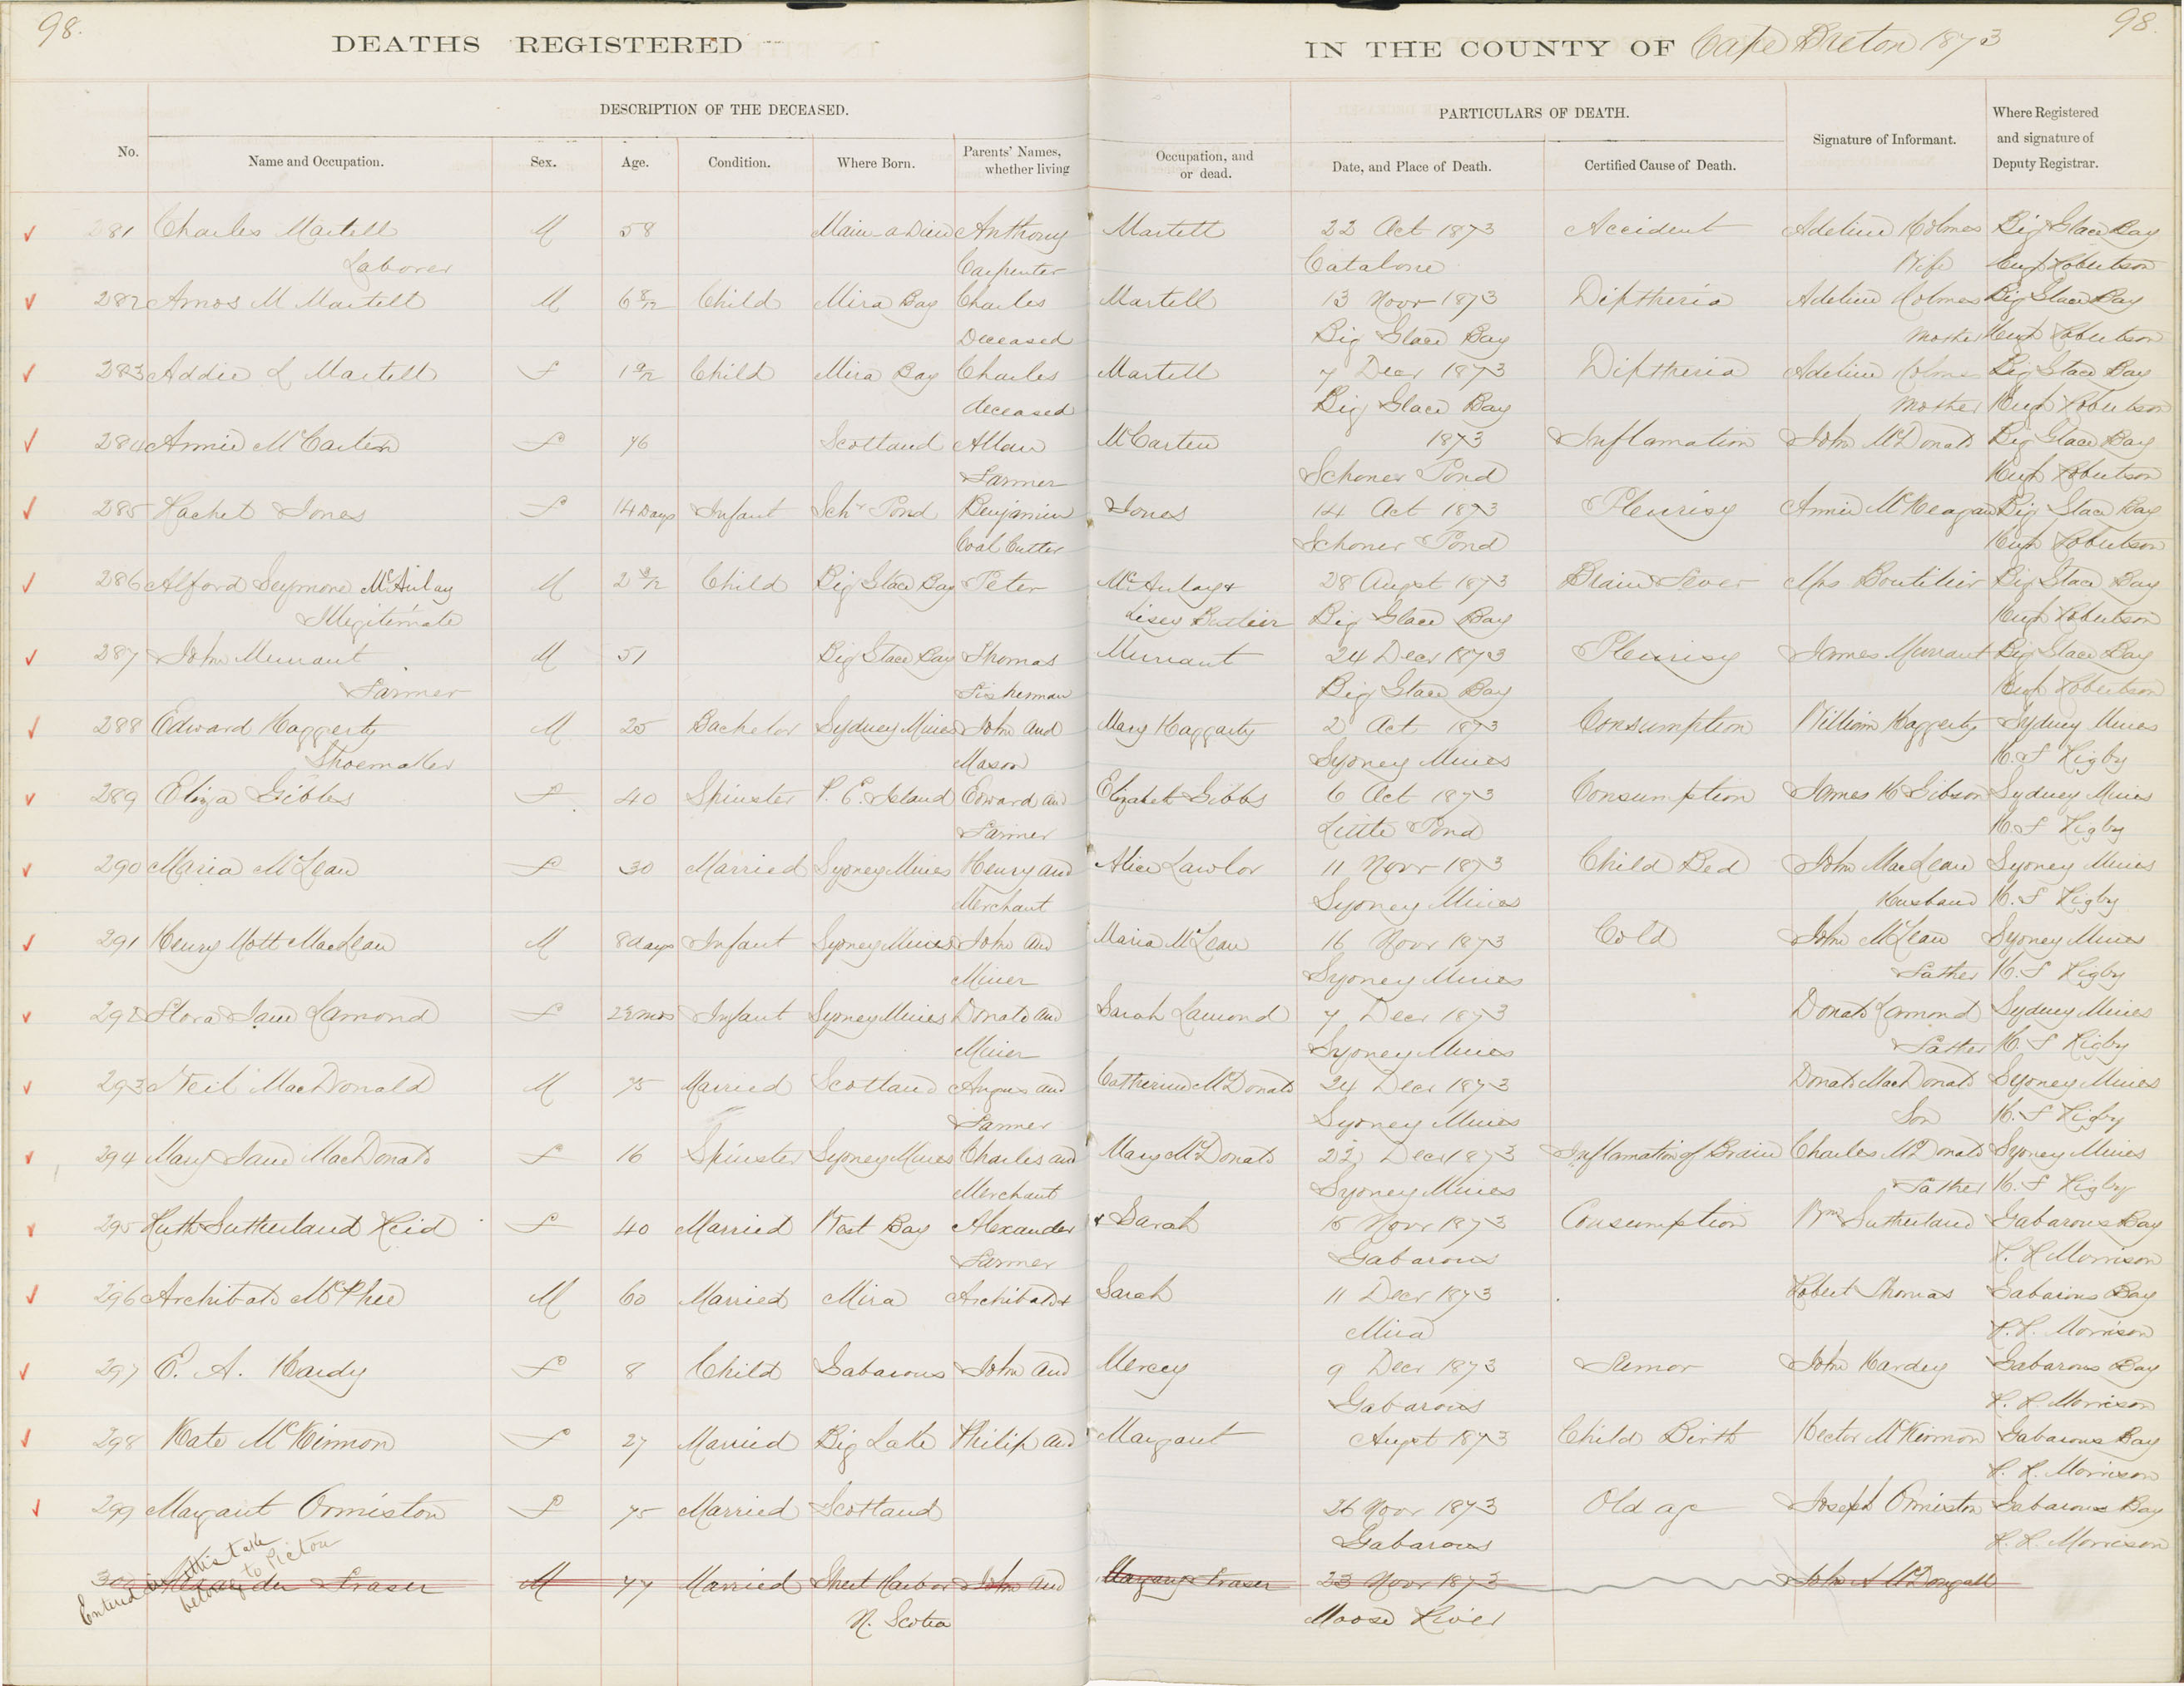 98. 98.
DEATHS REGISTERED IN THE COUNTY OF Cape Breton 1873
DESCRIPTION OF THE DECEASED. PARTICULARS OF DEATH. Signature of Informant. Where Registered and signature of Deputy Registrar.
No. Name and Occupation. Sex. Age. Condition. Where Born. Parents' Names, whether living Occupation, and or dead. Date, and Place of Death. Certified Cause of Death.
281 Charles Martell M 58 Main-a-Dieu Anthony Martell 22 Oct 1873 Accident Adeline Holmes Big Glace Bay
Laborer Carpenter Catalone Wife Hugh Robertson
282 Amos M Martell M 6 8/12 Child Mira Bay Charles Martell 13 Novr 1873 Diptheria Adeline Holmes Big Glace Bay
Deceased Big Glace Bay Mother Hugh Robertson
283 Addie L Martell F 1 9/12 Child Mira Bay Charles Martell 7 Decr 1873 Diptheria Adeline Holmes Big Glace Bay
deceased Big Glace Bay Mother Hugh Robertson
284 Annie McCarten F 76 Scotland Allan McCarten 1873 Inflamation John McDonald Big Glace Bay
Farmer Schoner Pond Hugh Robertson
285 Rachel Jones F 14 Days Infant Schr Pond Benjamin Jones 14 Oct 1873 Pleurisy Annie McKeagan Big Glace Bay
Coal Cutter Schoner Pond Hugh Robertson
286 Alford Seymore McAulay M 2 Child Big Glace Bay Peter McAulay + 28 Augst 1873 Brain Fever Mrs Boutilier Big Glace Bay
Illegitimate Big Glace Bay Hugh Robertson
287 John Murrant M 51 Big Glace Bay Thomas Murrant 24 Decr 1873 Pleurisy James Murrant Big Glace Bay
Farmer Fisherman Big Glace Bay Hugh Robertson
288 Edward Haggerty M 25 Bachelor Sydney Mines John and Mary Haggarty 2 Oct 1873 Consumption William Haggerty Sydney Mines
Shoemaker Mason Sydney Mines H. F Rigby
289 Eliza Gibbs F 40 Spinster P. E. Island Edward and Elizabeth Gibbs 6 Oct 1873 Consumption James H Gibson Sydney Mines
Farmer Little Pond H. F Rigby
290 Maria McLean F 30 Married Sydney Mines Henry and Alice Lawlor 11 Novr 1873 Child Bed John MacLean Sydney Mines
Merchant Sydney Mines Husband H. F Rigby
291 Henry Mott MacLean M 8 days Infant Sydney Mines John and Maria McLean 16 Novr 1873 Cold John McLean Sydney Mines
Miner Sydney Mines Father H. F Rigby
292 Flora Jane Lamond F 2½ mos Infant Sydney Mines Donald and Sarah Lamond 7 Decr 1873 Donald Lamond Sydney Mines
Miner Sydney Mines Father H. F Rigby
293 Neil MacDonald M 75 Married Scotland Angus and Catherine McDonald 24 Decr 1873 Donald MacDonald Sydney Mines
Farmer Sydney Mines Son H. F Rigby
294 Mary Jane MacDonald F 16 Spinster Sydney Mines Charles and Mary McDonald 22 Decr 1873 Inflamation of Brain Charles McDonald Sydney Mines
Merchant Sydney Mines Father H. F Rigby
295 Ruth Sutherland Reid F 40 Married West Bay Alexander + Sarah 15 Novr 1873 Consumption Wm Sutherland Gabarous Bay
Farmer Gabarous R. R Morrison
296 Archibald McPhee M 60 Married Mira Archibald + Sarah 11 Decr 1873 Robert Thomas Gabarous Bay
Mira R. R. Morrison
297 E. A. Hardy F 8 Child Gabarous John and Mercey 9 Decr 1873 John Hardey Gabarous Bay
Gabarous R. R Morrison
298 Kate McKinnon F 27 Married Big Lake Philip and Margaret Augst 1873 Child Birth Hector McKinnon Gabarous Bay
R. R. Morrison
299 Margaret Ormiston F 75 Married Scotland 26 Novr 1873 Old age Joseph Ormiston Gabarous Bay
Gabarous R. R. Morrison
Entered in mistake belongs to Pictou
300 Alexander Fraser M 47 Married Sheet Harbor John and Margaret Fraser 23 Novr 1873 John A McDougall
N. Scotia Moose River